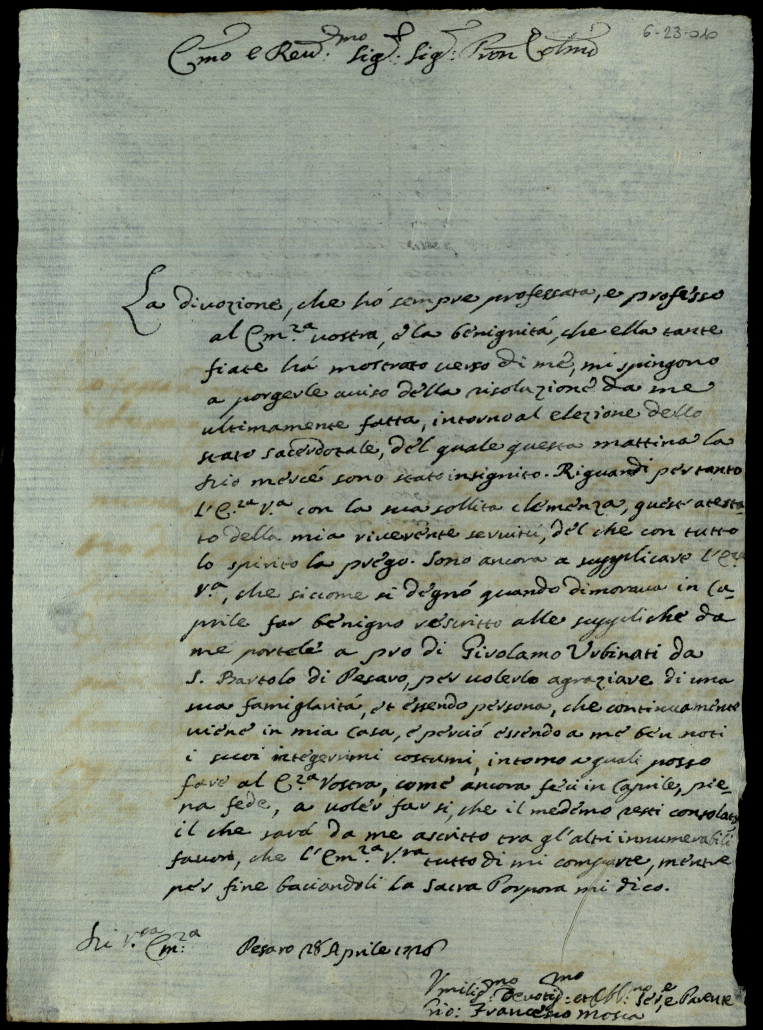 6-23-010
Emo e Reu:mo Sig:r Sig:r Pron Colmo
La diuozione, che hó sempre professata, e professo
al Em:za vostra, e la benignitá, che ella tante
fiate há mostrato uerso di me, mi spingono
a porgerle auiso della risoluzione da me
ultimamente fatta, intorno al elezione dello
stato sacerdotale, del quale questa mattina la
Dio mercé sono stato insignito. Riguardi per tanto
l'E:za V:a con la sua sollita clemenza, quest'atesta
to della mia riuerente seruitú, del che con tutto
lo spirito la prego. Sono ancora a supplicare l'E:za
V:a, che siccome si degnó quando dimoraua in Ca-
prile far benigno rescritto alle suppliche da
me portele a pro di Girolamo Urbinati da
S. Bartolo di Pesaro, per uolerlo agraziare di una
sua famigliaritá, et essendo persona, che continuamente
uiene in mia casa, e perció essendo a me ben noti
i suoi integerrimi costumi, intorno a quali posso
fare al E:za Vostra, come ancora feci in Caprile, pie-
na fede, a uoler far si, che il medemo resti consolato
il che sará da me ascritto tra gl'altri innumerabili
fauori, che l'Em:za V:ra tutto di mi comparte, mentre
per fine baciandoli la Sacra Porpora mi dico.
Di V:ra Em:za Pesaro 28 Aprile 1726
Vmilis:mo Deuotis:mo et Obl:mo Ser:e, e Parente
Gio: Francesco Mosca